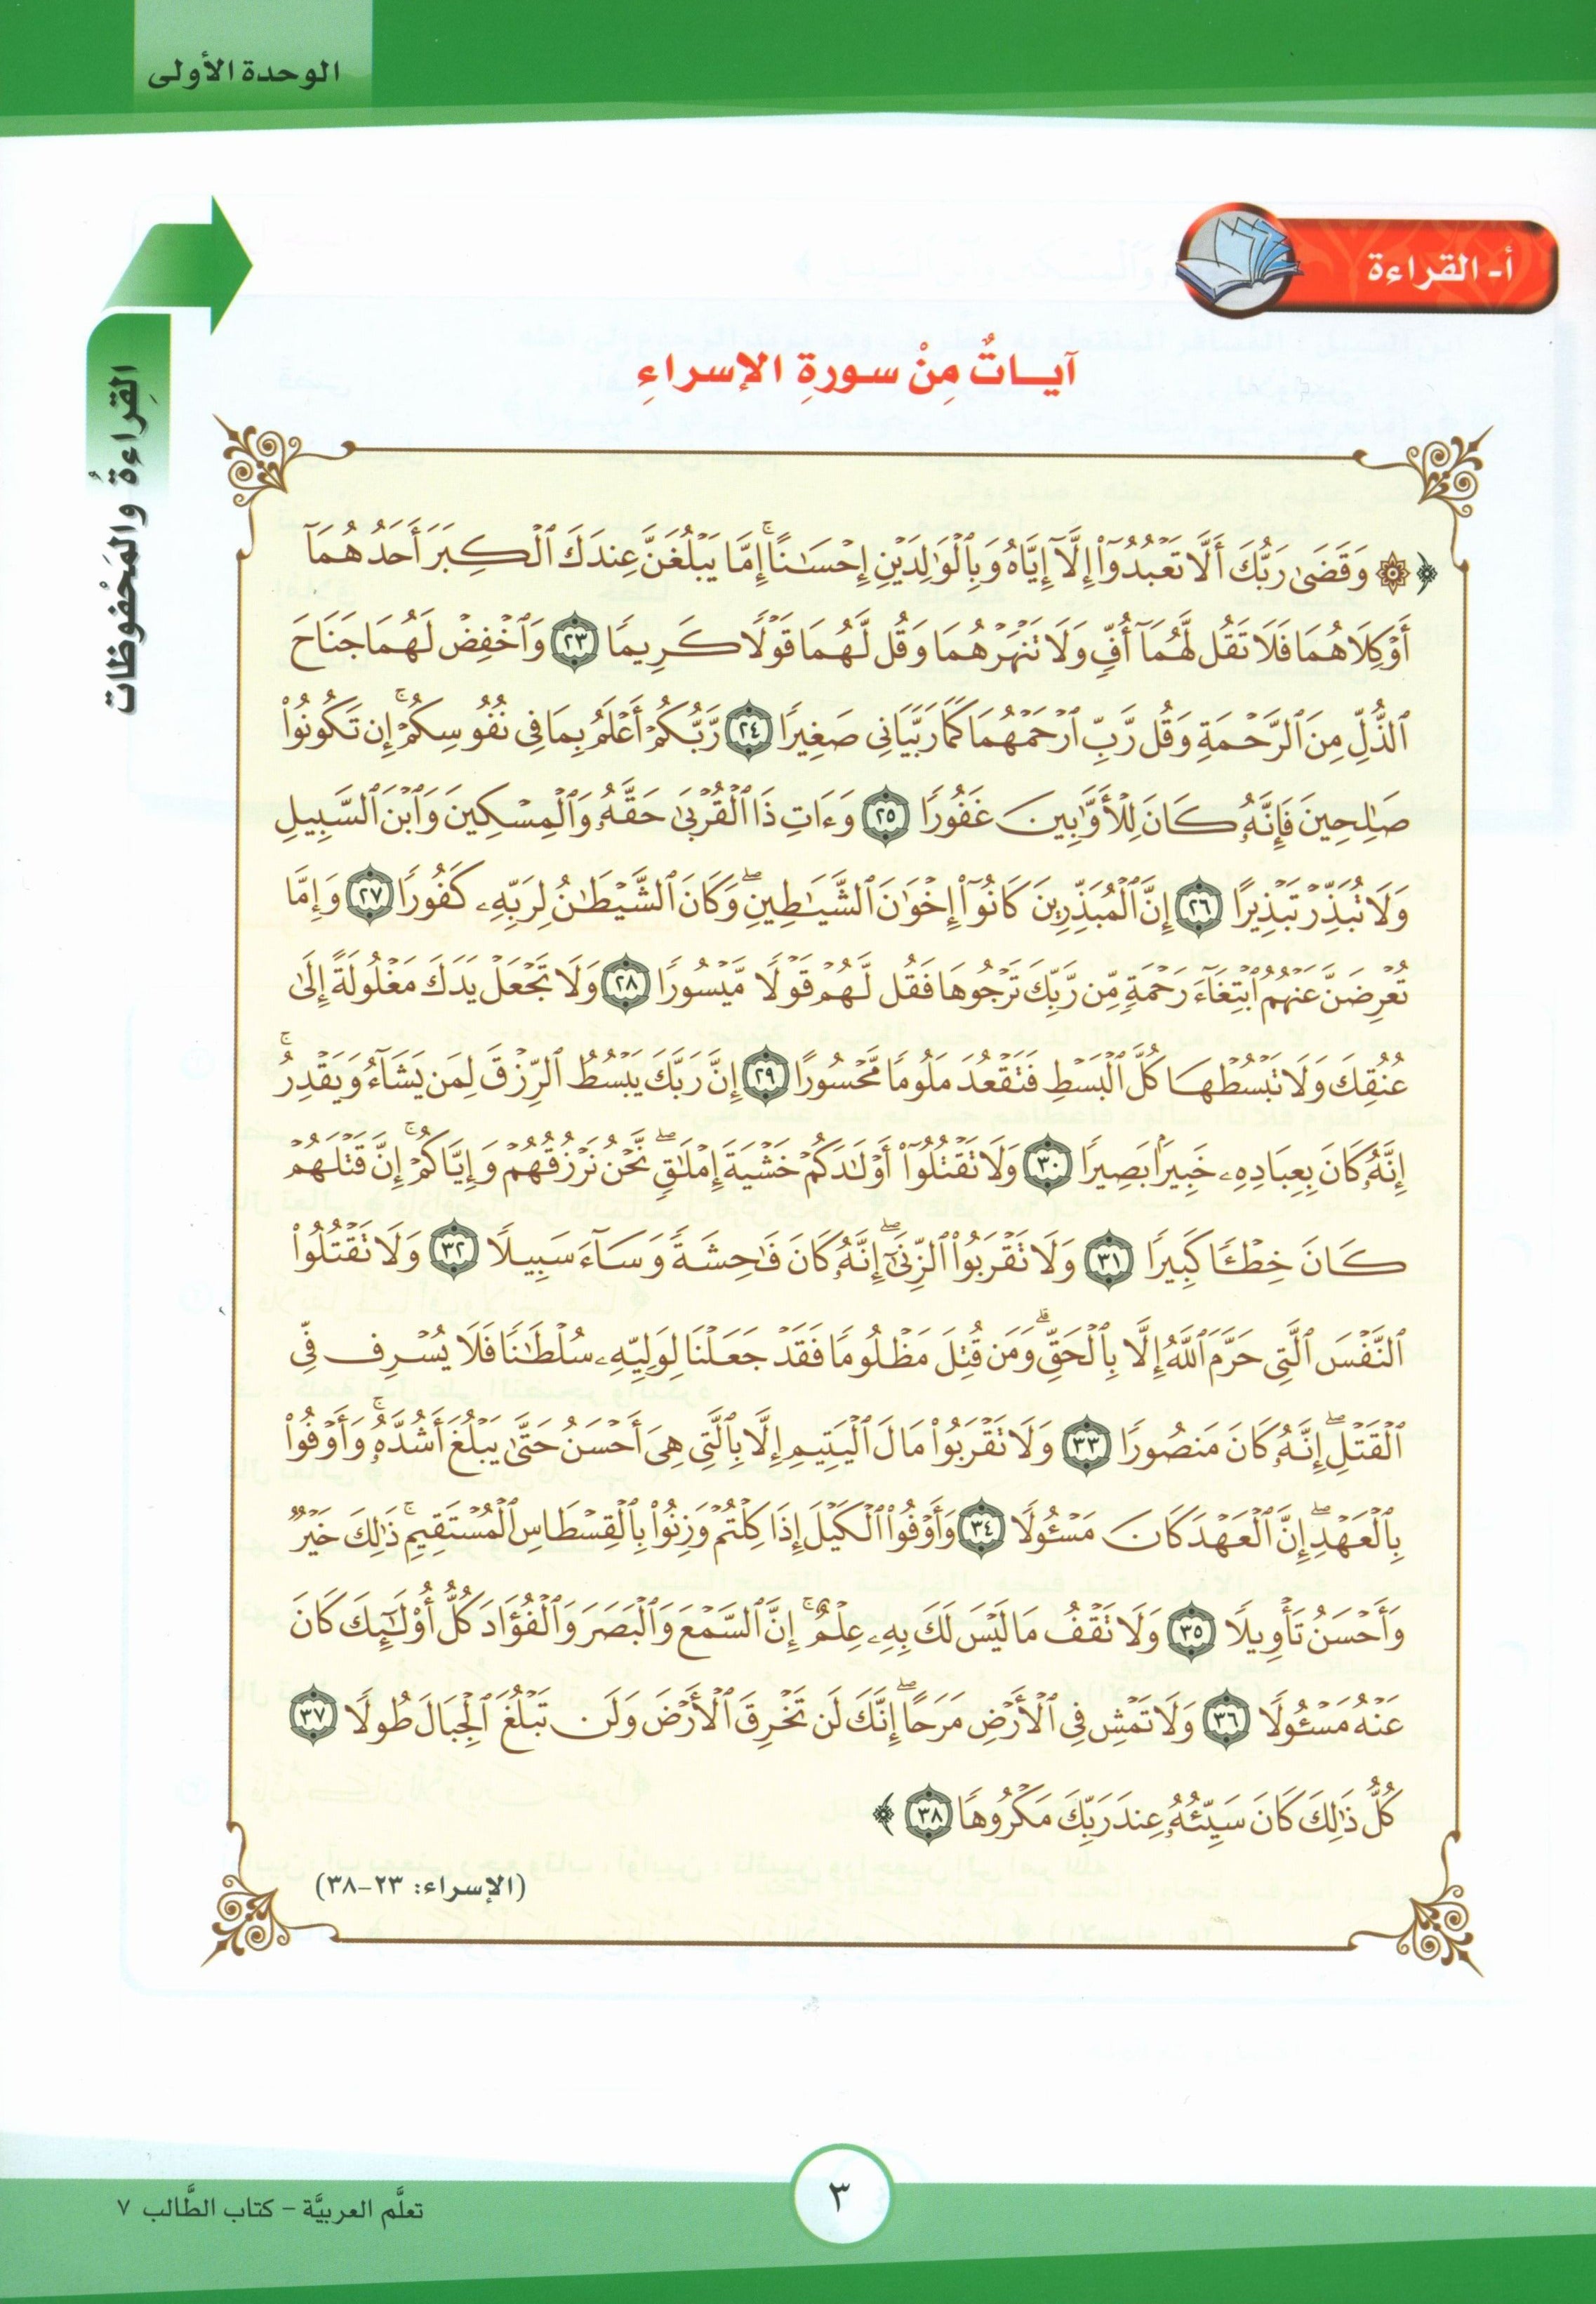 الوحدة الأولى
أ- القراءة
القِراءةُ والمَحْفوظات
آيــاتٌ مِنْ سورةِ الإسراءِ
﴿ ۞ وَقَضَىٰ رَبُّكَ أَلَّا تَعْبُدُوٓا۟ إِلَّآ إِيَّاهُ وَبِٱلْوَٰلِدَيْنِ إِحْسَـٰنًا ۚ إِمَّا يَبْلُغَنَّ عِندَكَ ٱلْكِبَرَ أَحَدُهُمَآ
أَوْ كِلَاهُمَا فَلَا تَقُل لَّهُمَآ أُفٍّ وَلَا تَنْهَرْهُمَا وَقُل لَّهُمَا قَوْلًا كَرِيمًا ٢٣ وَٱخْفِضْ لَهُمَا جَنَاحَ
ٱلذُّلِّ مِنَ ٱلرَّحْمَةِ وَقُل رَّبِّ ٱرْحَمْهُمَا كَمَا رَبَّيَانِى صَغِيرًا ٢٤ رَّبُّكُمْ أَعْلَمُ بِمَا فِى نُفُوسِكُمْ ۚ إِن تَكُونُوا۟
صَـٰلِحِينَ فَإِنَّهُۥ كَانَ لِلْأَوَّٰبِينَ غَفُورًا ٢٥ وَءَاتِ ذَا ٱلْقُرْبَىٰ حَقَّهُۥ وَٱلْمِسْكِينَ وَٱبْنَ ٱلسَّبِيلِ
وَلَا تُبَذِّرْ تَبْذِيرًا ٢٦ إِنَّ ٱلْمُبَذِّرِينَ كَانُوٓا۟ إِخْوَٰنَ ٱلشَّيَـٰطِينِ ۖ وَكَانَ ٱلشَّيْطَـٰنُ لِرَبِّهِۦ كَفُورًا ٢٧ وَإِمَّا
تُعْرِضَنَّ عَنْهُمُ ٱبْتِغَآءَ رَحْمَةٍ مِّن رَّبِّكَ تَرْجُوهَا فَقُل لَّهُمْ قَوْلًا مَّيْسُورًا ٢٨ وَلَا تَجْعَلْ يَدَكَ مَغْلُولَةً إِلَىٰ
عُنُقِكَ وَلَا تَبْسُطْهَا كُلَّ ٱلْبَسْطِ فَتَقْعُدَ مَلُومًا مَّحْسُورًا ٢٩ إِنَّ رَبَّكَ يَبْسُطُ ٱلرِّزْقَ لِمَن يَشَآءُ وَيَقْدِرُ ۚ
إِنَّهُۥ كَانَ بِعِبَادِهِۦ خَبِيرًۢا بَصِيرًا ٣٠ وَلَا تَقْتُلُوٓا۟ أَوْلَـٰدَكُمْ خَشْيَةَ إِمْلَـٰقٍ ۖ نَّحْنُ نَرْزُقُهُمْ وَإِيَّاكُمْ ۚ إِنَّ قَتْلَهُمْ
كَانَ خِطْـًٔا كَبِيرًا ٣١ وَلَا تَقْرَبُوا۟ ٱلزِّنَىٰٓ ۖ إِنَّهُۥ كَانَ فَـٰحِشَةً وَسَآءَ سَبِيلًا ٣٢ وَلَا تَقْتُلُوا۟
ٱلنَّفْسَ ٱلَّتِى حَرَّمَ ٱللَّهُ إِلَّا بِٱلْحَقِّ ۗ وَمَن قُتِلَ مَظْلُومًا فَقَدْ جَعَلْنَا لِوَلِيِّهِۦ سُلْطَـٰنًا فَلَا يُسْرِف فِّى
ٱلْقَتْلِ ۖ إِنَّهُۥ كَانَ مَنصُورًا ٣٣ وَلَا تَقْرَبُوا۟ مَالَ ٱلْيَتِيمِ إِلَّا بِٱلَّتِى هِىَ أَحْسَنُ حَتَّىٰ يَبْلُغَ أَشُدَّهُۥ ۚ وَأَوْفُوا۟
بِٱلْعَهْدِ ۖ إِنَّ ٱلْعَهْدَ كَانَ مَسْـُٔولًا ٣٤ وَأَوْفُوا۟ ٱلْكَيْلَ إِذَا كِلْتُمْ وَزِنُوا۟ بِٱلْقِسْطَاسِ ٱلْمُسْتَقِيمِ ۚ ذَٰلِكَ خَيْرٌ
وَأَحْسَنُ تَأْوِيلًا ٣٥ وَلَا تَقْفُ مَا لَيْسَ لَكَ بِهِۦ عِلْمٌ ۚ إِنَّ ٱلسَّمْعَ وَٱلْبَصَرَ وَٱلْفُؤَادَ كُلُّ أُو۟لَـٰٓئِكَ كَانَ
عَنْهُ مَسْـُٔولًا ٣٦ وَلَا تَمْشِ فِى ٱلْأَرْضِ مَرَحًا ۖ إِنَّكَ لَن تَخْرِقَ ٱلْأَرْضَ وَلَن تَبْلُغَ ٱلْجِبَالَ طُولًا ٣٧
كُلُّ ذَٰلِكَ كَانَ سَيِّئُهُۥ عِندَ رَبِّكَ مَكْرُوهًا ٣٨ ﴾
(الإسراء: ٢٣-٣٨)
٣
تعلَّم العربيَّة - كتاب الطَّالب ٧